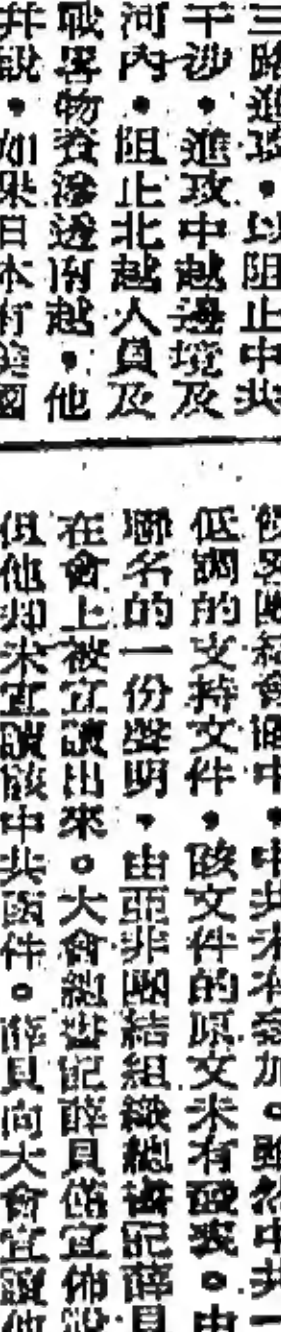 三路進攻，以阻止中共
干涉，進攻中越邊境及
河內，阻止北越人員及
戰畧物資滲透南越，他
并說，如果日本有美國
團結會議中，中共未有參加。雖然中共一
低調的支持文件，該文件的原文未有發表。由
聯名的一份聲明，由亞非團結組織總書記薛貝
在會上被宣讀出來。大會總書記薛貝僅宣佈說
但他却未宣讀該中共函件。薛貝向大會宣讀他